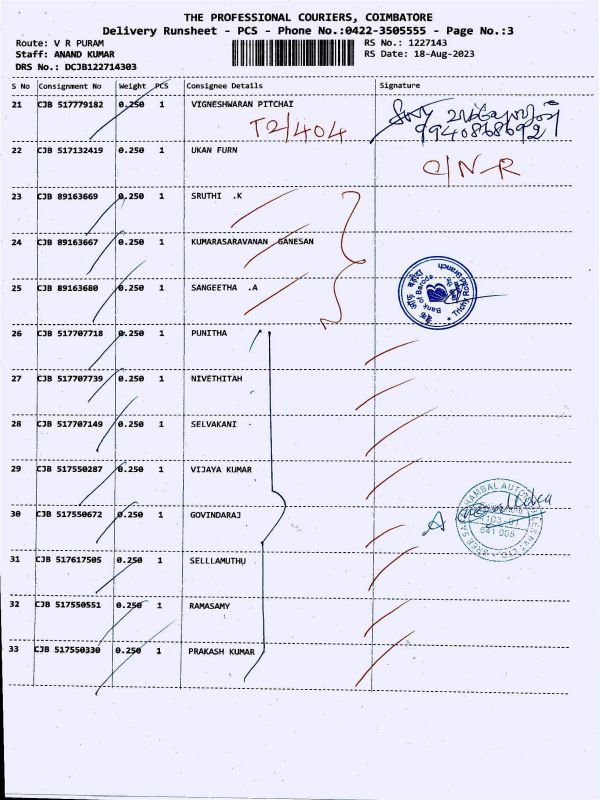 THE PROFESSIONAL COURIERS, COIMBATORE
Delivery Runsheet - PCS - Phone No.:0422-3505555 - Page No.:3
Route: V R PURAM RS No.: 1227143
Staff: ANAND KUMAR RS Date: 18-Aug-2023
DRS No.: DCJB122714303
S No Consignment No Weight PCS Consignee Details Signature
21 CJB 517779182 0.250 1 VIGNESHWARAN PITCHAI
T2/404
9940868692
22 CJB 517132419 0.250 1 UKAN FURN
C/N-R
23 CJB 89163669 0.250 1 SRUTHI .K
24 CJB 89163667 0.250 1 KUMARASARAVANAN GANESAN
25 CJB 89163680 0.250 1 SANGEETHA .A
Bank of Baroda
26 CJB 517707718 0.250 1 PUNITHA
27 CJB 517707739 0.250 1 NIVETHITAH
28 CJB 517707149 0.250 1 SELVAKANI
29 CJB 517550287 0.250 1 VIJAYA KUMAR
30 CJB 517550672 0.250 1 GOVINDARAJ
641 005
31 CJB 517617505 0.250 1 SELLLAMUTHU
32 CJB 517550551 0.250 1 RAMASAMY
33 CJB 517550330 0.250 1 PRAKASH KUMAR